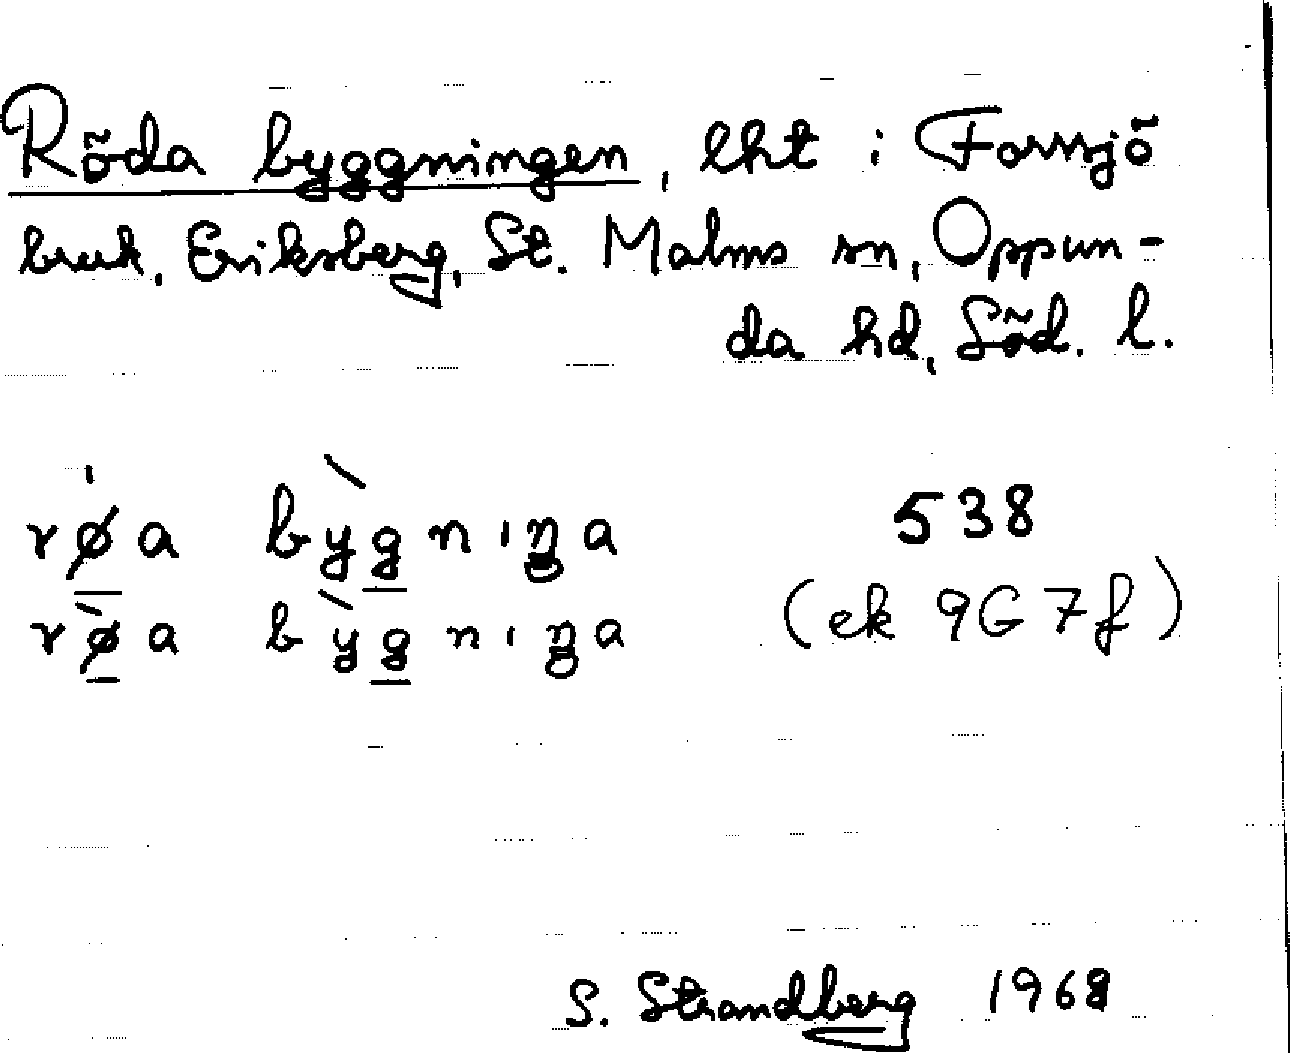 Röda byggningen, lht i Forssjö
bruk, Eriksberg, St. Malms sn, Oppun-
da hd, Söd. l.
rǿa bỳgnıŋa 538
rø̀a bỳgnıŋa (ek 9G7f)
S. Strandberg 1968